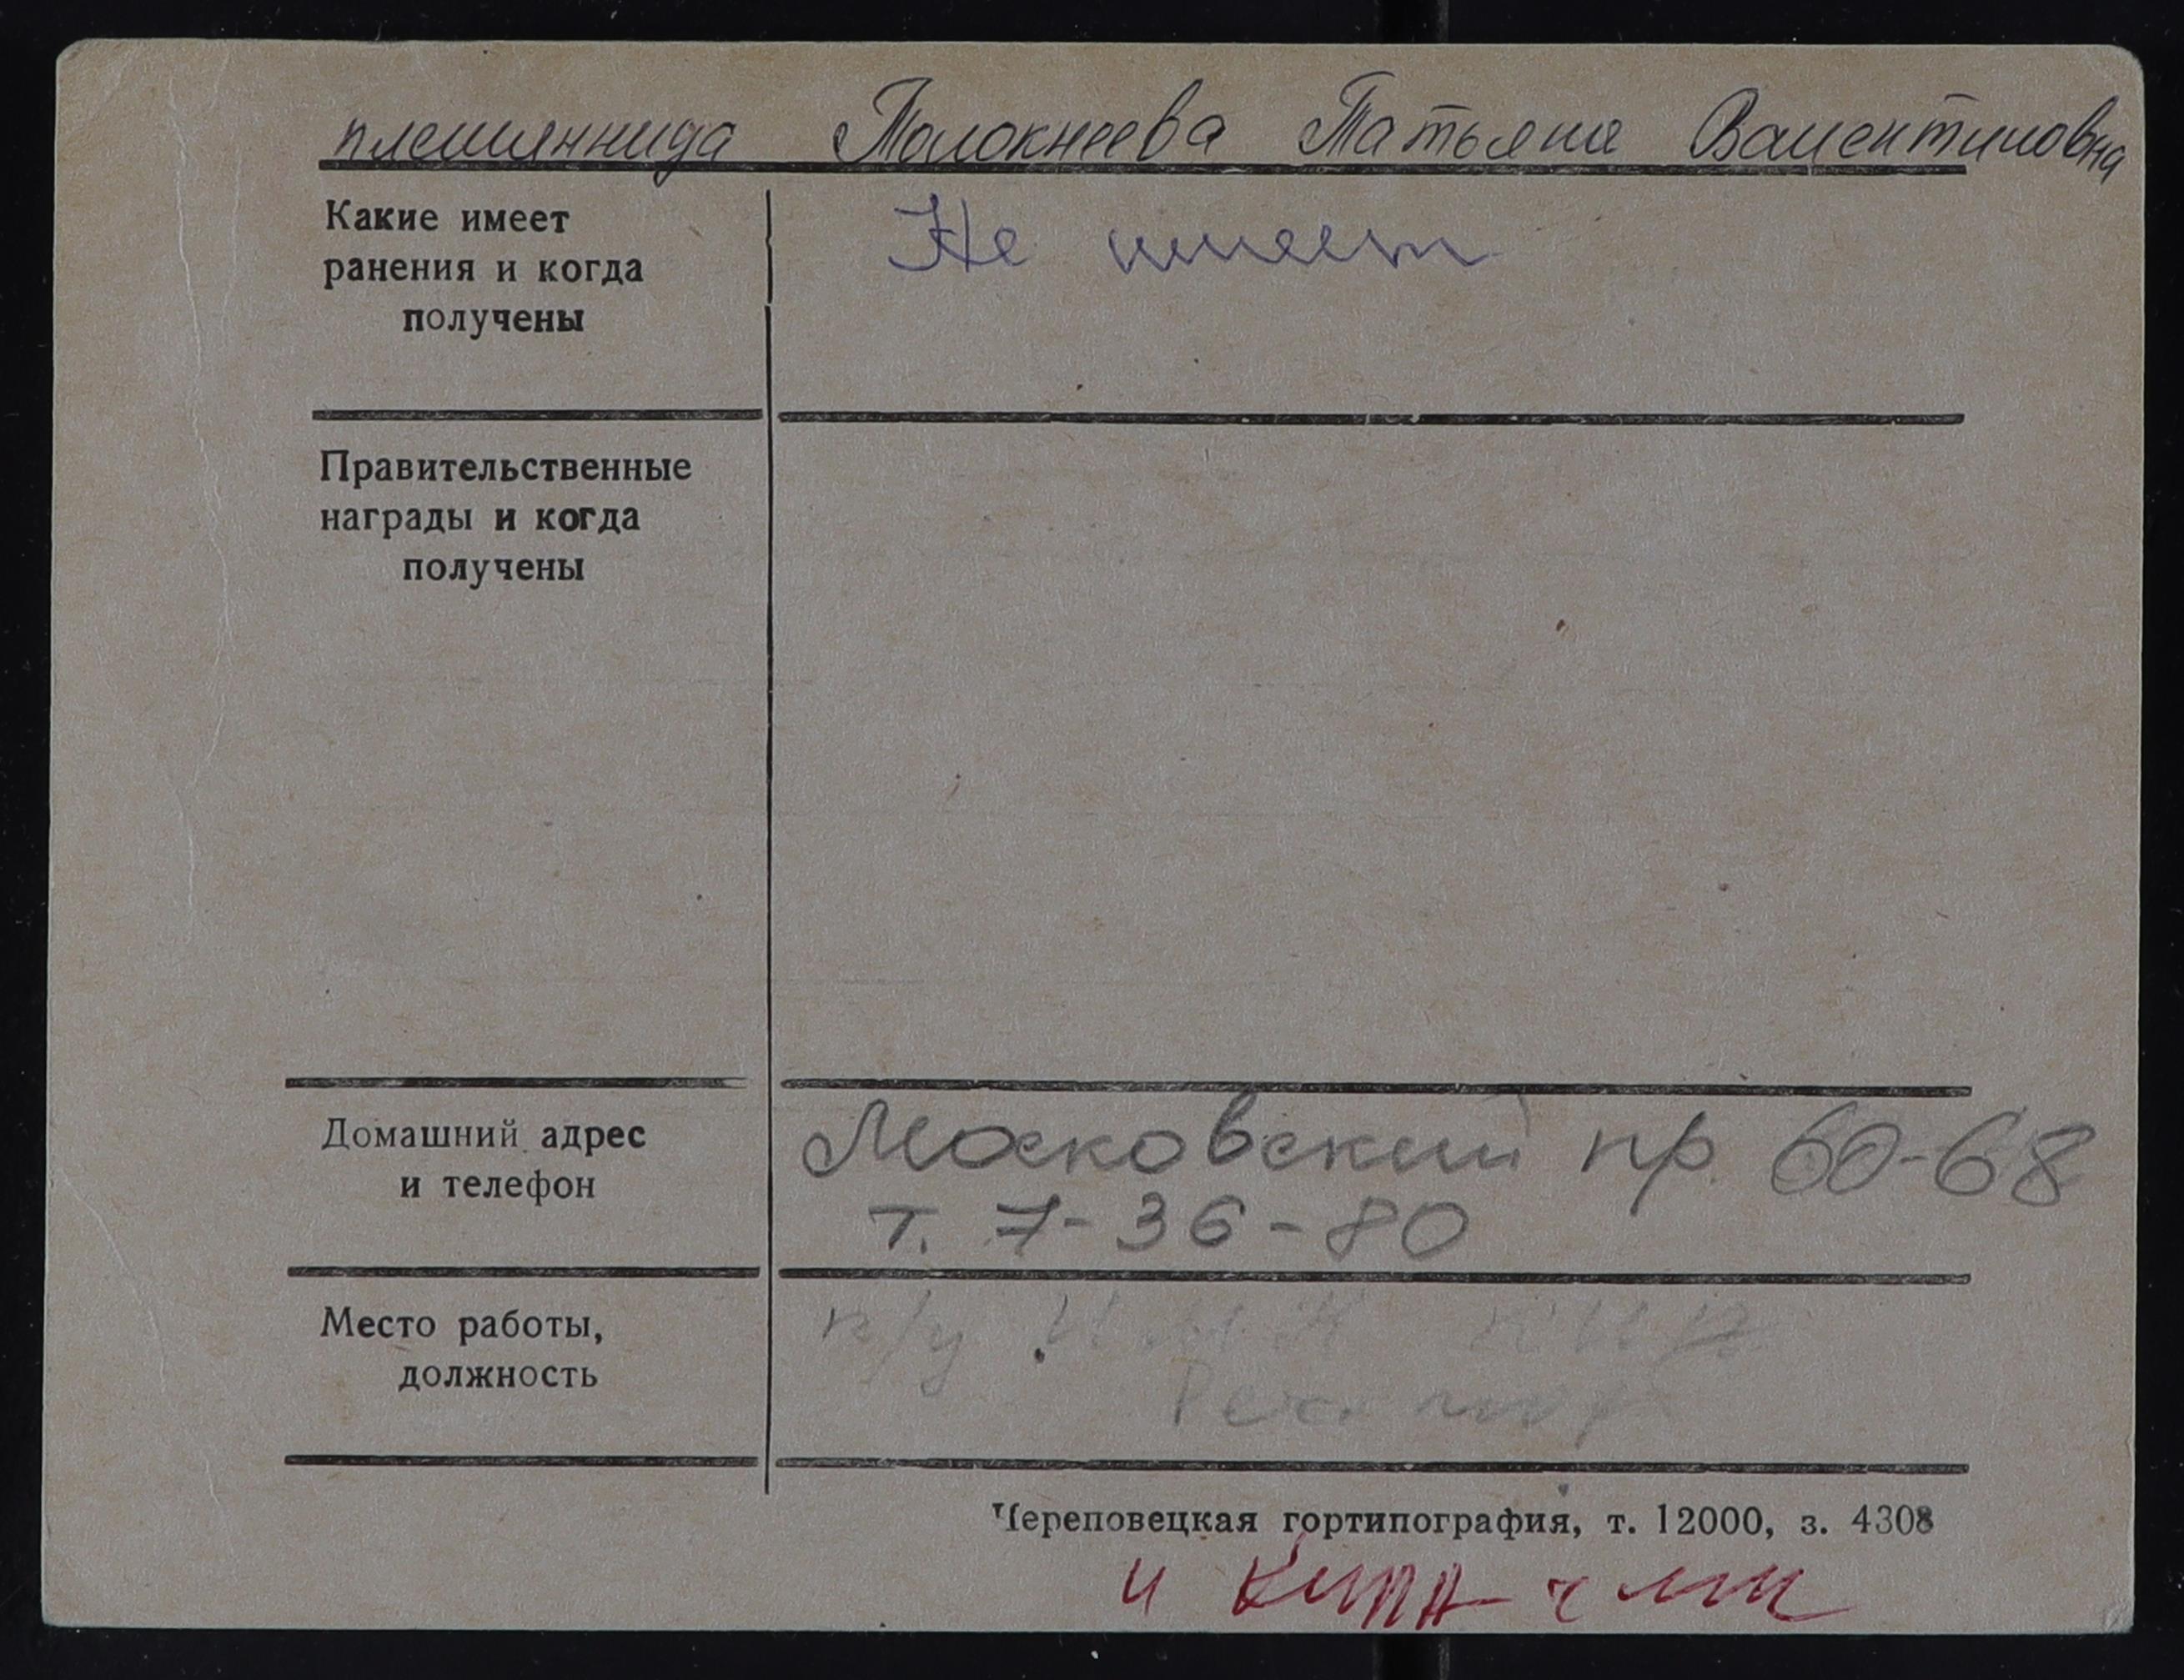 племянница Толокнеева Татьяна Валентиновна
Какие имеет
ранения и когда
получены
Не имеет
Правительственные
награды и когда
получены
Домашний адрес
и телефон
Московский пр. 60-68
т. 7-36-80
Место работы,
должность
п/у
Череповецкая гортипография, т. 12000, з. 4308
и